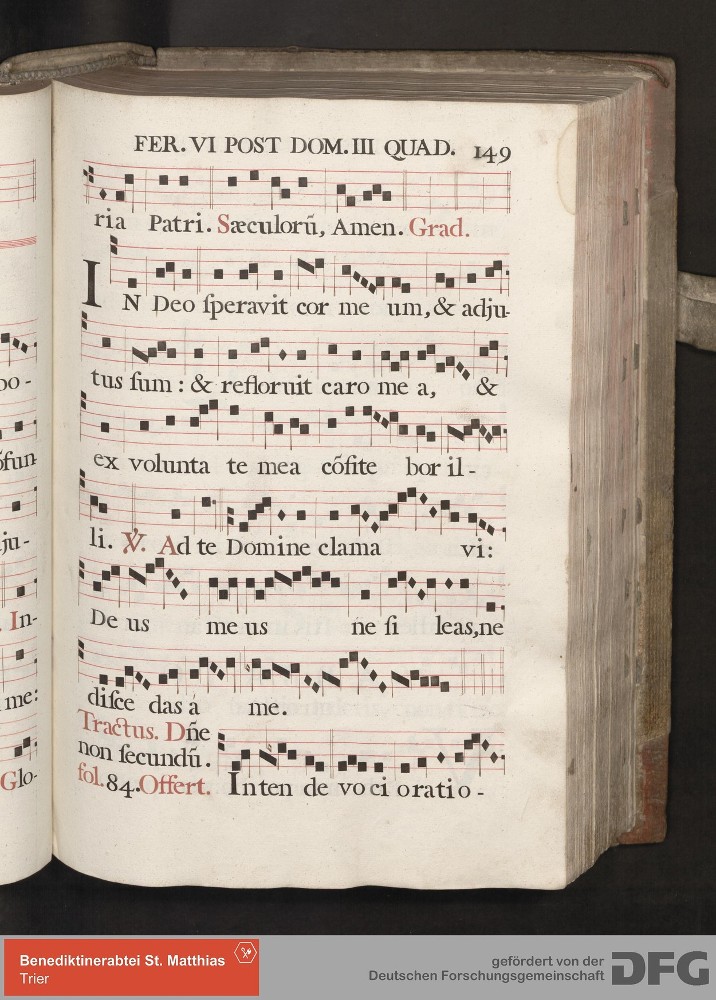 po-
ōfun
ju-
In-
me:
Glo-
FER. VI POST DOM. III QUAD. 149
ria Patri. Sæculorũ, Amen. Grad.
IN Deo ſperavit cor me um, & adju-
tus ſum : & refloruit caro me a, &
ex volunta te mea cōfite bor il-
li. ℣. Ad te Domine clama vi:
De us me us ñe ſi leas, ne
diſce das á me.
Tractus. Dñe
non ſecundũ.
fol. 84. Offert. Inten de vo ci o ratio-
Benediktinerabtei St. Matthias
Trier
gefördert von der
Deutschen Forschungsgemeinschaft DFG